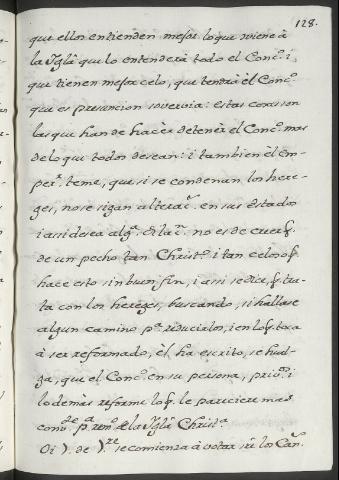 128.
que ellos entienden mejor lo que viene à
la Yglâ que lo entenderà todo el Conc.º i,
que tienen mejor celo, que tendrà èl Conc.º
que es presuncion sovervia: estas cosas son
las que han de hacèr detenèr el Conc.º mas
de lo que todos desean: i tambien èl Em-
per.r teme, que si se condenan los here-
ges, no se sigan alterac.s en sus Estados
i assi desea alg.ª dilac.n no es de creer q.
de un pecho tan Christ.º i tan celoso q.
hace esto sin buen fin, i assi se dice, q. tra-
ta con los hereges, buscando, si hallase
algun camino p.ª reducirlos, i en lo q. toca
à ser reformado, èl ha escrito, se huel-
ga, que el Conc.º en su persona, priv.s i
lo demàs reforme lo q. le pareciere mas
conv.te p.ª rem.º de la Yglâ Christ.ª
Oi ). de ).re se comienza à votar sre los Can.